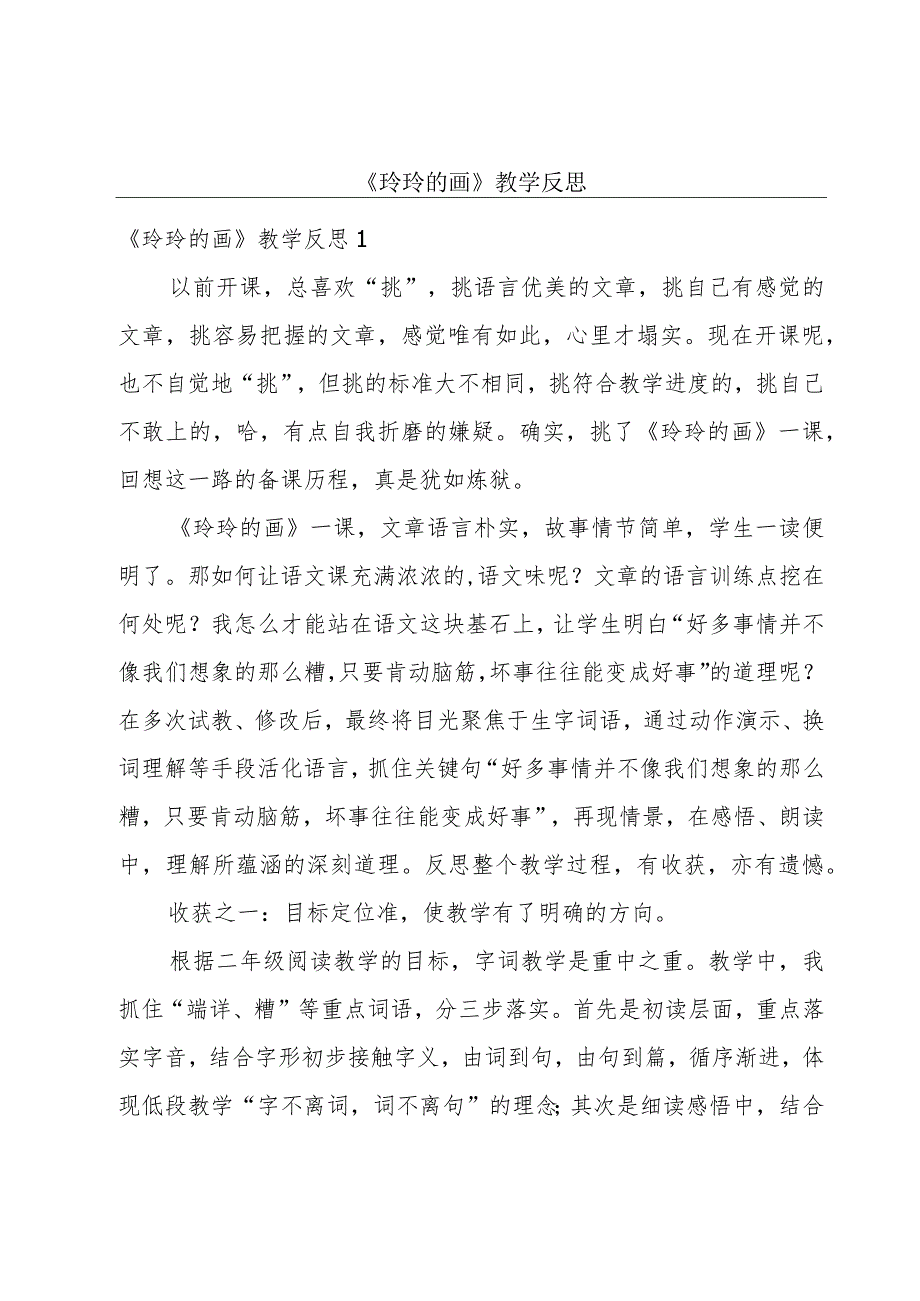 《玲玲的画》教学反思
《玲玲的画》教学反思1
以前开课，总喜欢“挑”，挑语言优美的文章，挑自己有感觉的
文章，挑容易把握的文章，感觉唯有如此，心里才塌实。现在开课呢，
也不自觉地“挑”，但挑的标准大不相同，挑符合教学进度的，挑自己
不敢上的，哈，有点自我折磨的嫌疑。确实，挑了《玲玲的画》一课，
回想这一路的备课历程，真是犹如炼狱。
《玲玲的画》一课，文章语言朴实，故事情节简单，学生一读便
明了。那如何让语文课充满浓浓的,语文味呢？文章的语言训练点挖在
何处呢？我怎么才能站在语文这块基石上，让学生明白“好多事情并不
像我们想象的那么糟，只要肯动脑筋，坏事往往能变成好事”的道理呢？
在多次试教、修改后，最终将目光聚焦于生字词语，通过动作演示、换
词理解等手段活化语言，抓住关键句“好多事情并不像我们想象的那么
糟，只要肯动脑筋，坏事往往能变成好事”，再现情景，在感悟、朗读
中，理解所蕴涵的深刻道理。反思整个教学过程，有收获，亦有遗憾。
收获之一：目标定位准，使教学有了明确的方向。
根据二年级阅读教学的目标，字词教学是重中之重。教学中，我
抓住“端详、糟”等重点词语，分三步落实。首先是初读层面，重点落
实字音，结合字形初步接触字义，由词到句，由句到篇，循序渐进，体
现低段教学“字不离词，词不离句”的理念；其次是细读感悟中，结合